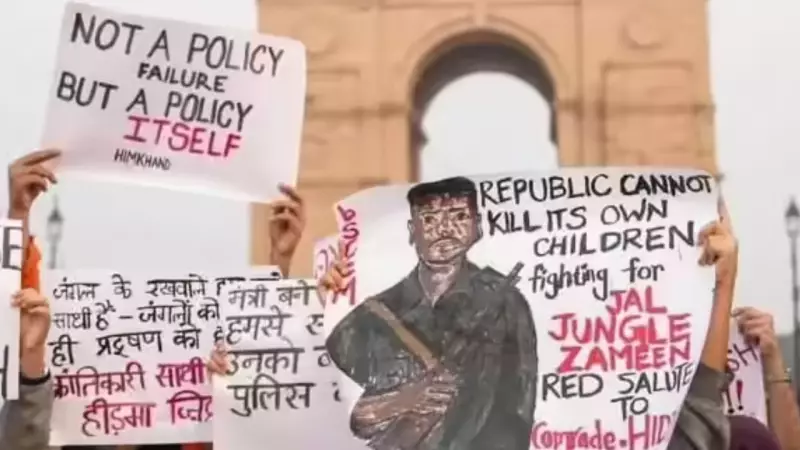 NOT A POLICY
FAILURE
BUT A POLICY
ITSELF
HIMKHAND
जंगल के रखवाले
साथी है - जंगलों को
ही प्रदूषण को
क्रांतिकारी साथी
हीड़मा
मंत्री बने
हमसे
उनको
पुलिस
REPUBLIC CANNOT
KILL ITS OWN
CHILDREN
fighting for
JAL
JUNGLE
ZAMEEN
RED SALUTE
TO
Comrade. HID
bscem